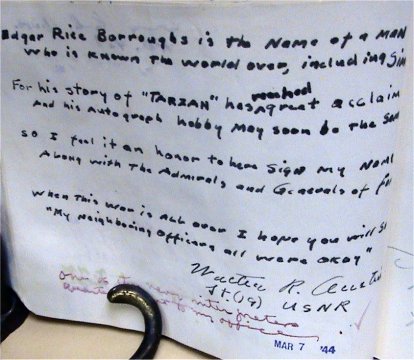 Edgar Rice Borroughs is the Name of a MAN
Who is known the world over, including Sim
For his story of "TARZAN" has reached great acclaim
And his Autograph hobby may soon be the Sam
So I feel it an honor to here Sign my Name
Along with the Admirals and Generals of
When This War is All over I hope you will S
"My Neighboring Officers all were okay"
Walter R.
Lt (jg) USNR
one of
my office
MAR 7 '44